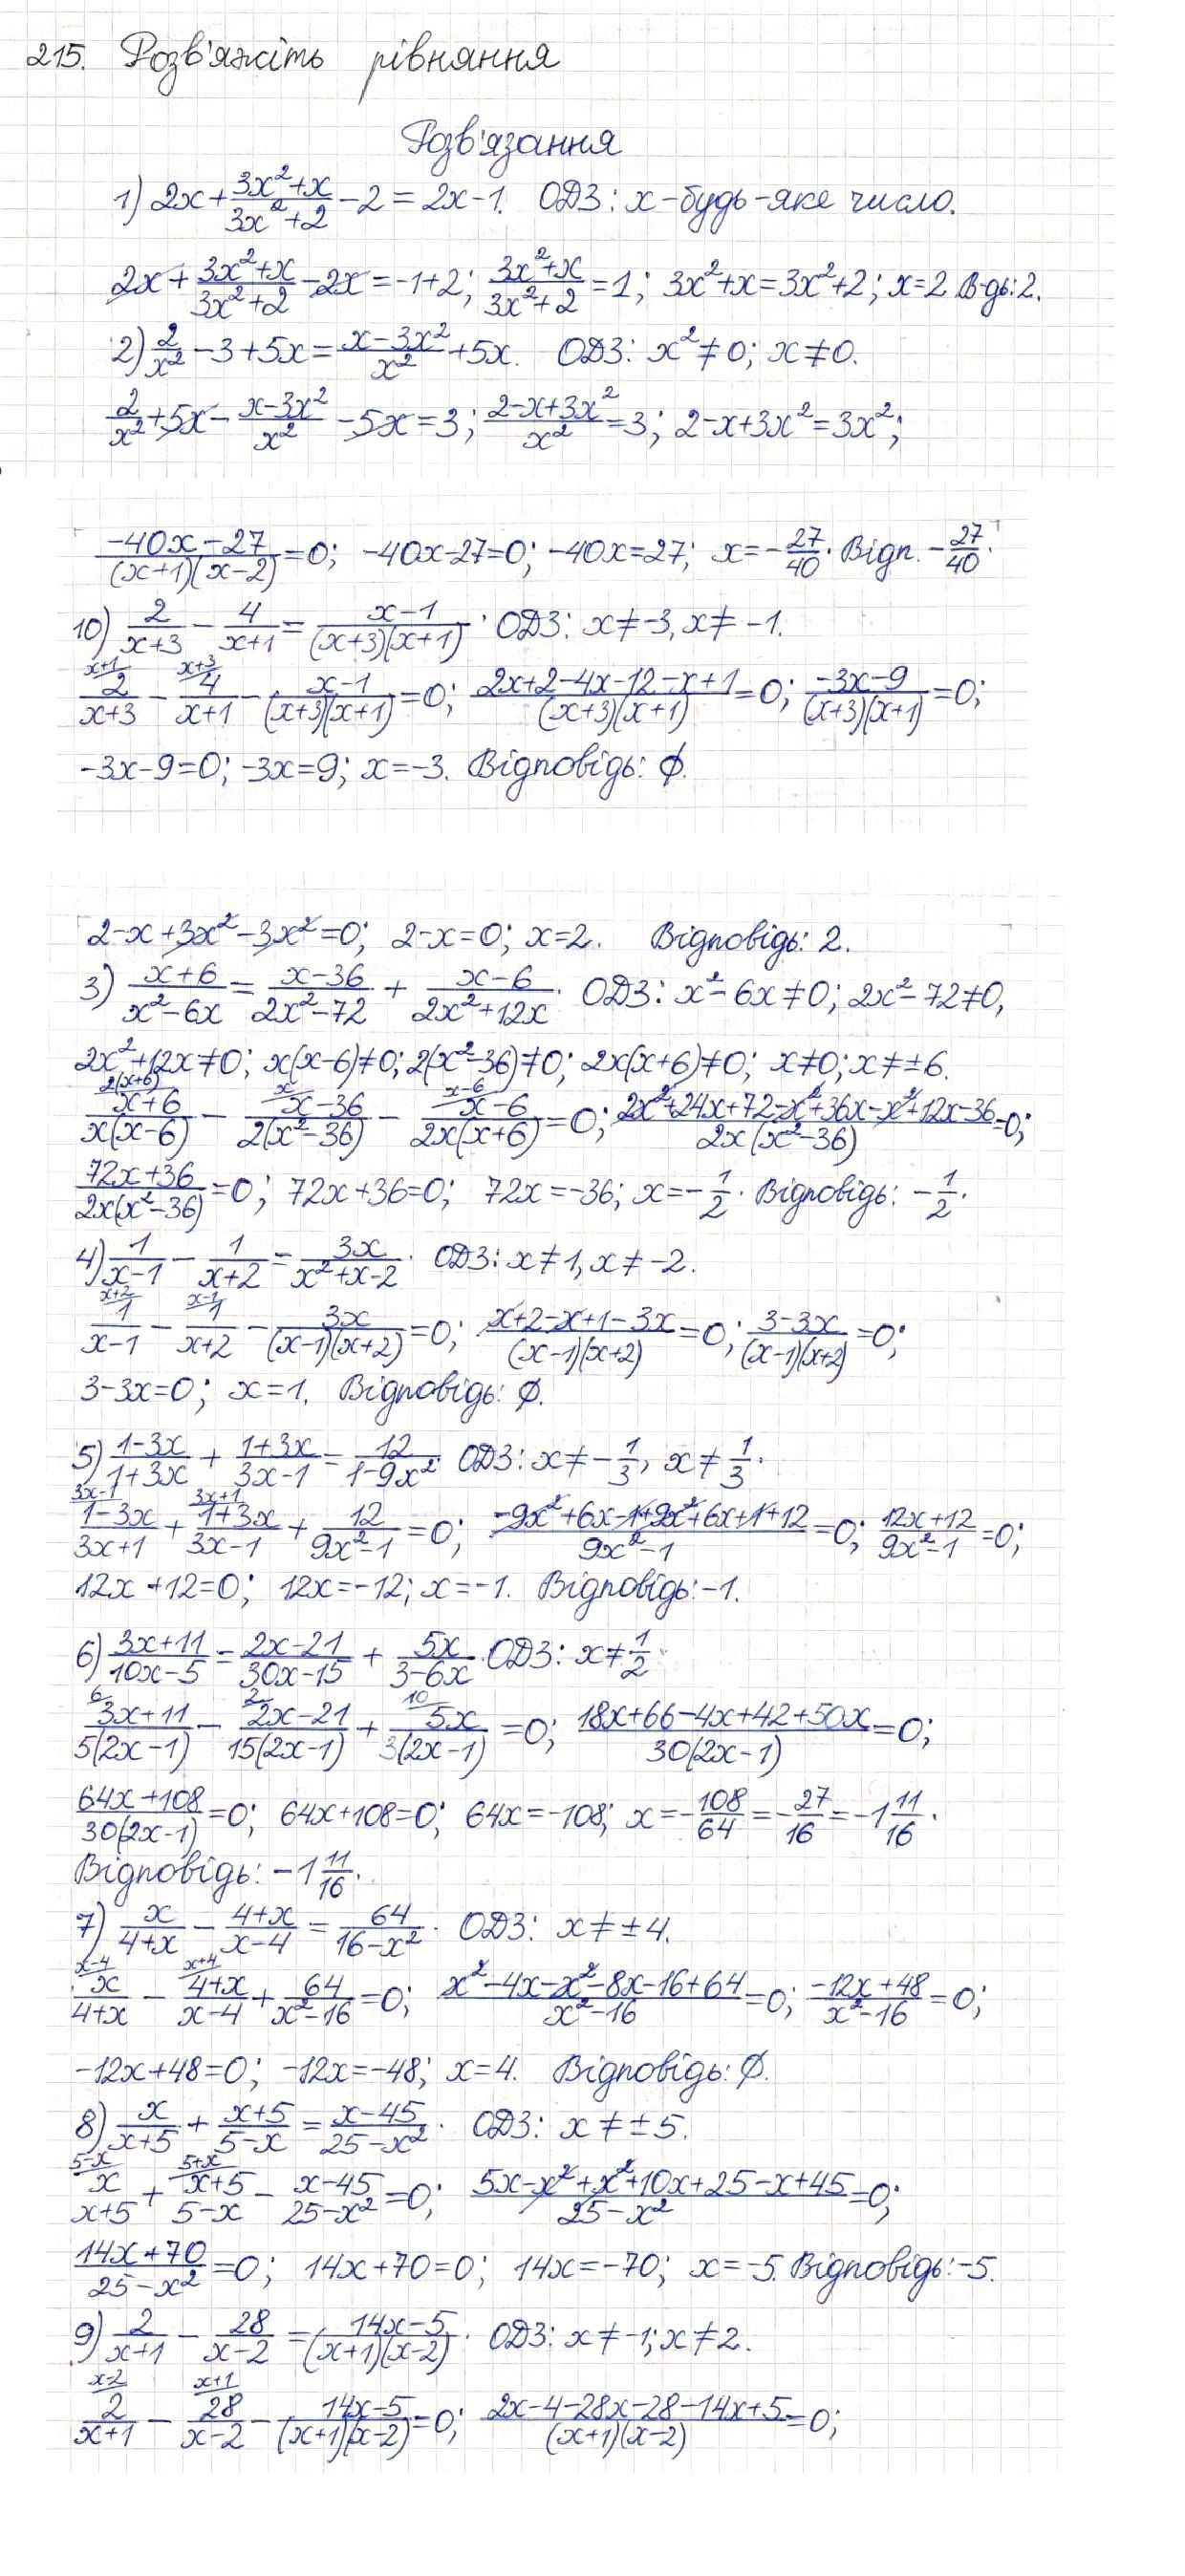 215. Розв'яжіть рівняння
Розв'язання
1) 2x + (3x²+x)/(3x²+2) - 2 = 2x - 1. ОДЗ: x - будь-яке число.
2x + (3x²+x)/(3x²+2) - 2x = -1+2; (3x²+x)/(3x²+2) = 1; 3x²+x = 3x²+2; x=2. В-дь: 2.
2) 2/x² - 3 + 5x = (x-3x²)/x² + 5x. ОДЗ: x² ≠ 0; x ≠ 0.
2/x² + 5x - (x-3x²)/x² - 5x = 3; (2-x+3x²)/x² = 3; 2-x+3x² = 3x²;
(-40x-27)/((x+1)(x-2)) = 0; -40x-27=0; -40x=27; x = -27/40. Відп. -27/40.
10) 2/(x+3) - 4/(x+1) = (x-1)/((x+3)(x+1)). ОДЗ: x ≠ -3, x ≠ -1.
x+1 x+3
2/(x+3) - 4/(x+1) - (x-1)/((x+3)(x+1)) = 0; (2x+2-4x-12-x+1)/((x+3)(x+1)) = 0; (-3x-9)/((x+3)(x+1)) = 0;
-3x-9=0; -3x=9; x=-3. Відповідь: ∅.
2-x+3x²-3x²=0; 2-x=0; x=2. Відповідь: 2.
3) (x+6)/(x²-6x) = (x-36)/(2x²-72) + (x-6)/(2x²+12x). ОДЗ: x²-6x≠0; 2x²-72≠0,
2x²+12x≠0; x(x-6)≠0; 2(x²-36)≠0; 2x(x+6)≠0; x≠0; x≠±6.
2(x+6) x x-6
(x+6)/(x(x-6)) - (x-36)/(2(x²-36)) - (x-6)/(2x(x+6)) = 0; (2x²+24x+72-x²+36x-x²+12x-36)/(2x(x²-36)) = 0;
(72x+36)/(2x(x²-36)) = 0; 72x+36=0; 72x=-36; x=-1/2. Відповідь: -1/2.
4) 1/(x-1) - 1/(x+2) = 3x/(x²+x-2). ОДЗ: x≠1, x≠-2.
x+2 x-1
1/(x-1) - 1/(x+2) - 3x/((x-1)(x+2)) = 0; (x+2-x+1-3x)/((x-1)(x+2)) = 0; (3-3x)/((x-1)(x+2)) = 0;
3-3x=0; x=1. Відповідь: ∅.
5) (1-3x)/(1+3x) + (1+3x)/(3x-1) = 12/(1-9x²). ОДЗ: x≠-1/3, x≠1/3.
3x-1 3x+1
(1-3x)/(3x+1) + (1+3x)/(3x-1) + 12/(9x²-1) = 0; (-9x²+6x-1+9x²+6x+1+12)/(9x²-1) = 0; (12x+12)/(9x²-1) = 0;
12x+12=0; 12x=-12; x=-1. Відповідь: -1.
6) (3x+11)/(10x-5) = (2x-21)/(30x-15) + 5x/(3-6x). ОДЗ: x≠1/2.
6 2 10
(3x+11)/(5(2x-1)) - (2x-21)/(15(2x-1)) + 5x/(3(2x-1)) = 0; (18x+66-4x+42+50x)/(30(2x-1)) = 0;
(64x+108)/(30(2x-1)) = 0; 64x+108=0; 64x=-108; x = -108/64 = -27/16 = -1 11/16.
Відповідь: -1 11/16.
7) x/(4+x) - (4+x)/(x-4) = 64/(16-x²). ОДЗ: x≠±4.
x-4 x+4
x/(4+x) - (4+x)/(x-4) + 64/(x²-16) = 0; (x²-4x-x²-8x-16+64)/(x²-16) = 0; (-12x+48)/(x²-16) = 0;
-12x+48=0; -12x=-48; x=4. Відповідь: ∅.
8) x/(x+5) + (x+5)/(5-x) = (x-45)/(25-x²). ОДЗ: x≠±5.
5-x 5+x
x/(x+5) + (x+5)/(5-x) - (x-45)/(25-x²) = 0; (5x-x²+x²+10x+25-x+45)/(25-x²) = 0;
(14x+70)/(25-x²) = 0; 14x+70=0; 14x=-70; x=-5. Відповідь: -5.
9) 2/(x+1) - 28/(x-2) = (14x-5)/((x+1)(x-2)). ОДЗ: x≠-1; x≠2.
x-2 x+1
2/(x+1) - 28/(x-2) - (14x-5)/((x+1)(x-2)) = 0; (2x-4-28x-28-14x+5)/((x+1)(x-2)) = 0;